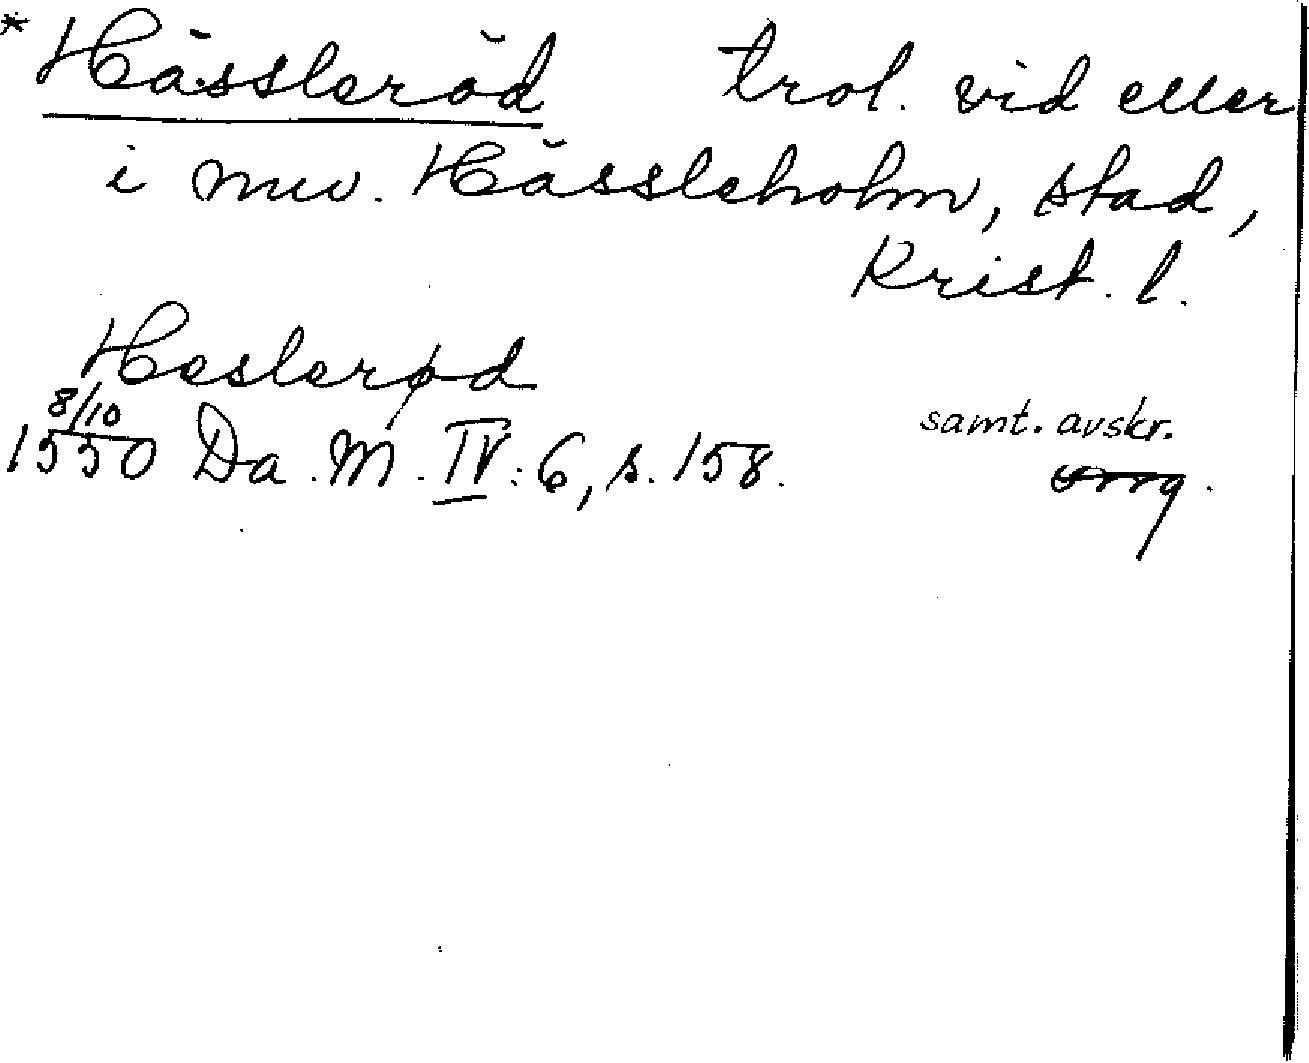 *Hässleröd trol. vid eller
i nuv. Hässleholm, stad,
Krist. l.
Heslerød
8/10
1550 Da. M. IV: 6, s. 158.
samt. avskr.
orig.